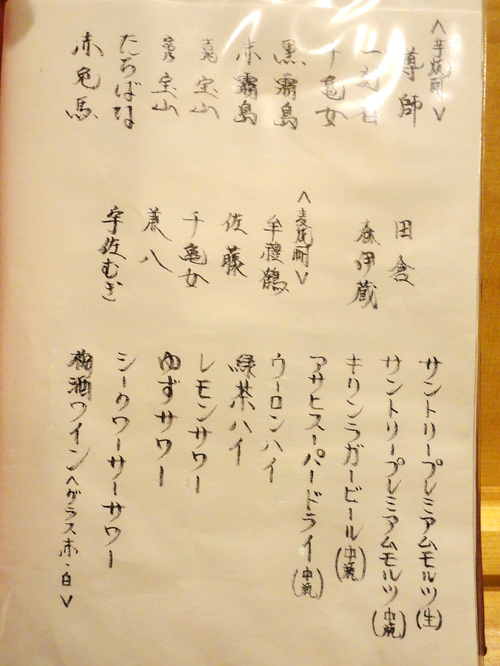 <芋焼酎>
尊師
一刻者
千亀女
黒霧島
赤霧島
㐂宝山
宝山
たちばな
赤兎馬
田倉
森伊蔵
<麦焼酎>
牟禮鶴
佐藤
千亀女
兼八
宇佐むぎ
サントリープレミアムモルツ(生)
サントリープレミアムモルツ(中瓶)
キリンラガービール(中瓶)
アサヒスーパードライ(中瓶)
ウーロンハイ
緑茶ハイ
レモンサワー
ゆずサワー
シークワーサーサワー
梅酒ワイン<グラス赤・白>